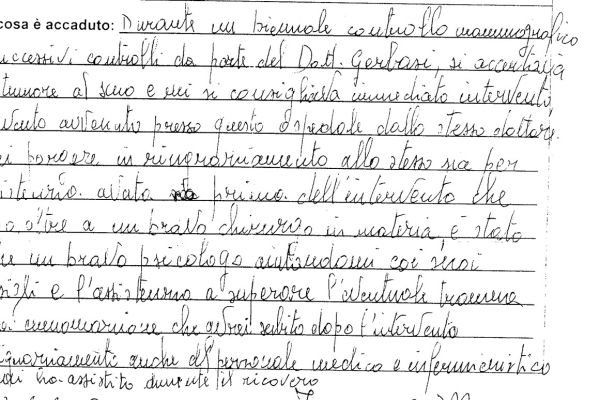 cosa è accaduto: Durante un biennale controllo mammografico
successivi controlli da parte del Dott. Gerbasi, si accertava
tumore al seno e mi si consigliava immediato intervento,
vento avvenuto presso questo ospedale dallo stesso dottore.
ei porgere un ringraziamento allo stesso sia per
istenza avuta prima dell'intervento che
o oltre a un bravo chirurgo in materia, è stato
he un bravo psicologo aiutandomi coi suoi
sigli e l'assistenza a superare l'eventuale trauma
che avrei subito dopo l'intervento
ngraziamenti anche al personale medico e infermieristico
mi ha assistito durante il ricovero